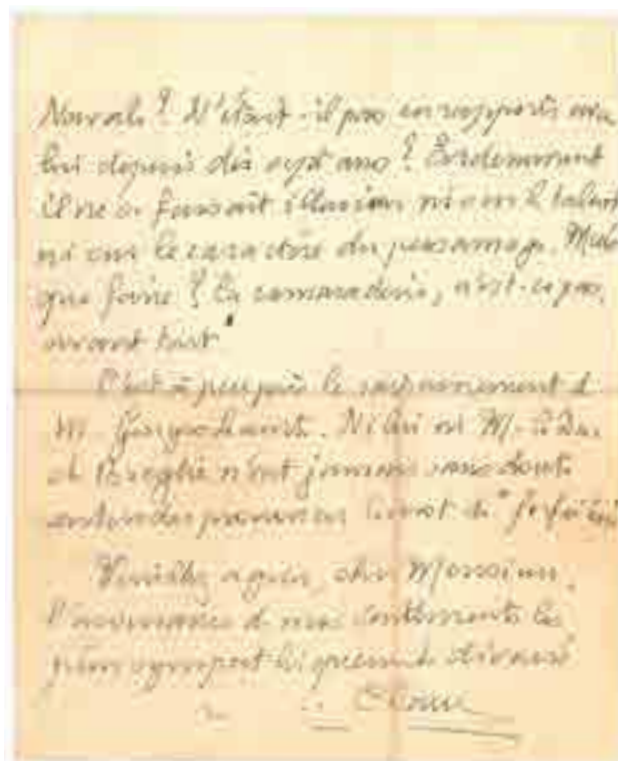 ? N'était-il pas en rapports avec
lui depuis dix sept ans ?
il ne se faisait illusion ni sur le talent
ni sur le caractère du personnage. Mais
que faire ? La camaraderie, n'est-ce pas,
avant tout
C'est à peu près le raisonnement d
M. Ni lui ni M. le Duc
de Broglie n'ont jamais sans doute
entendu prononcer le mot de
Veuillez agréer, cher Monsieur,
l'assurance de mes sentiments les
plus sympathiquement dévoués